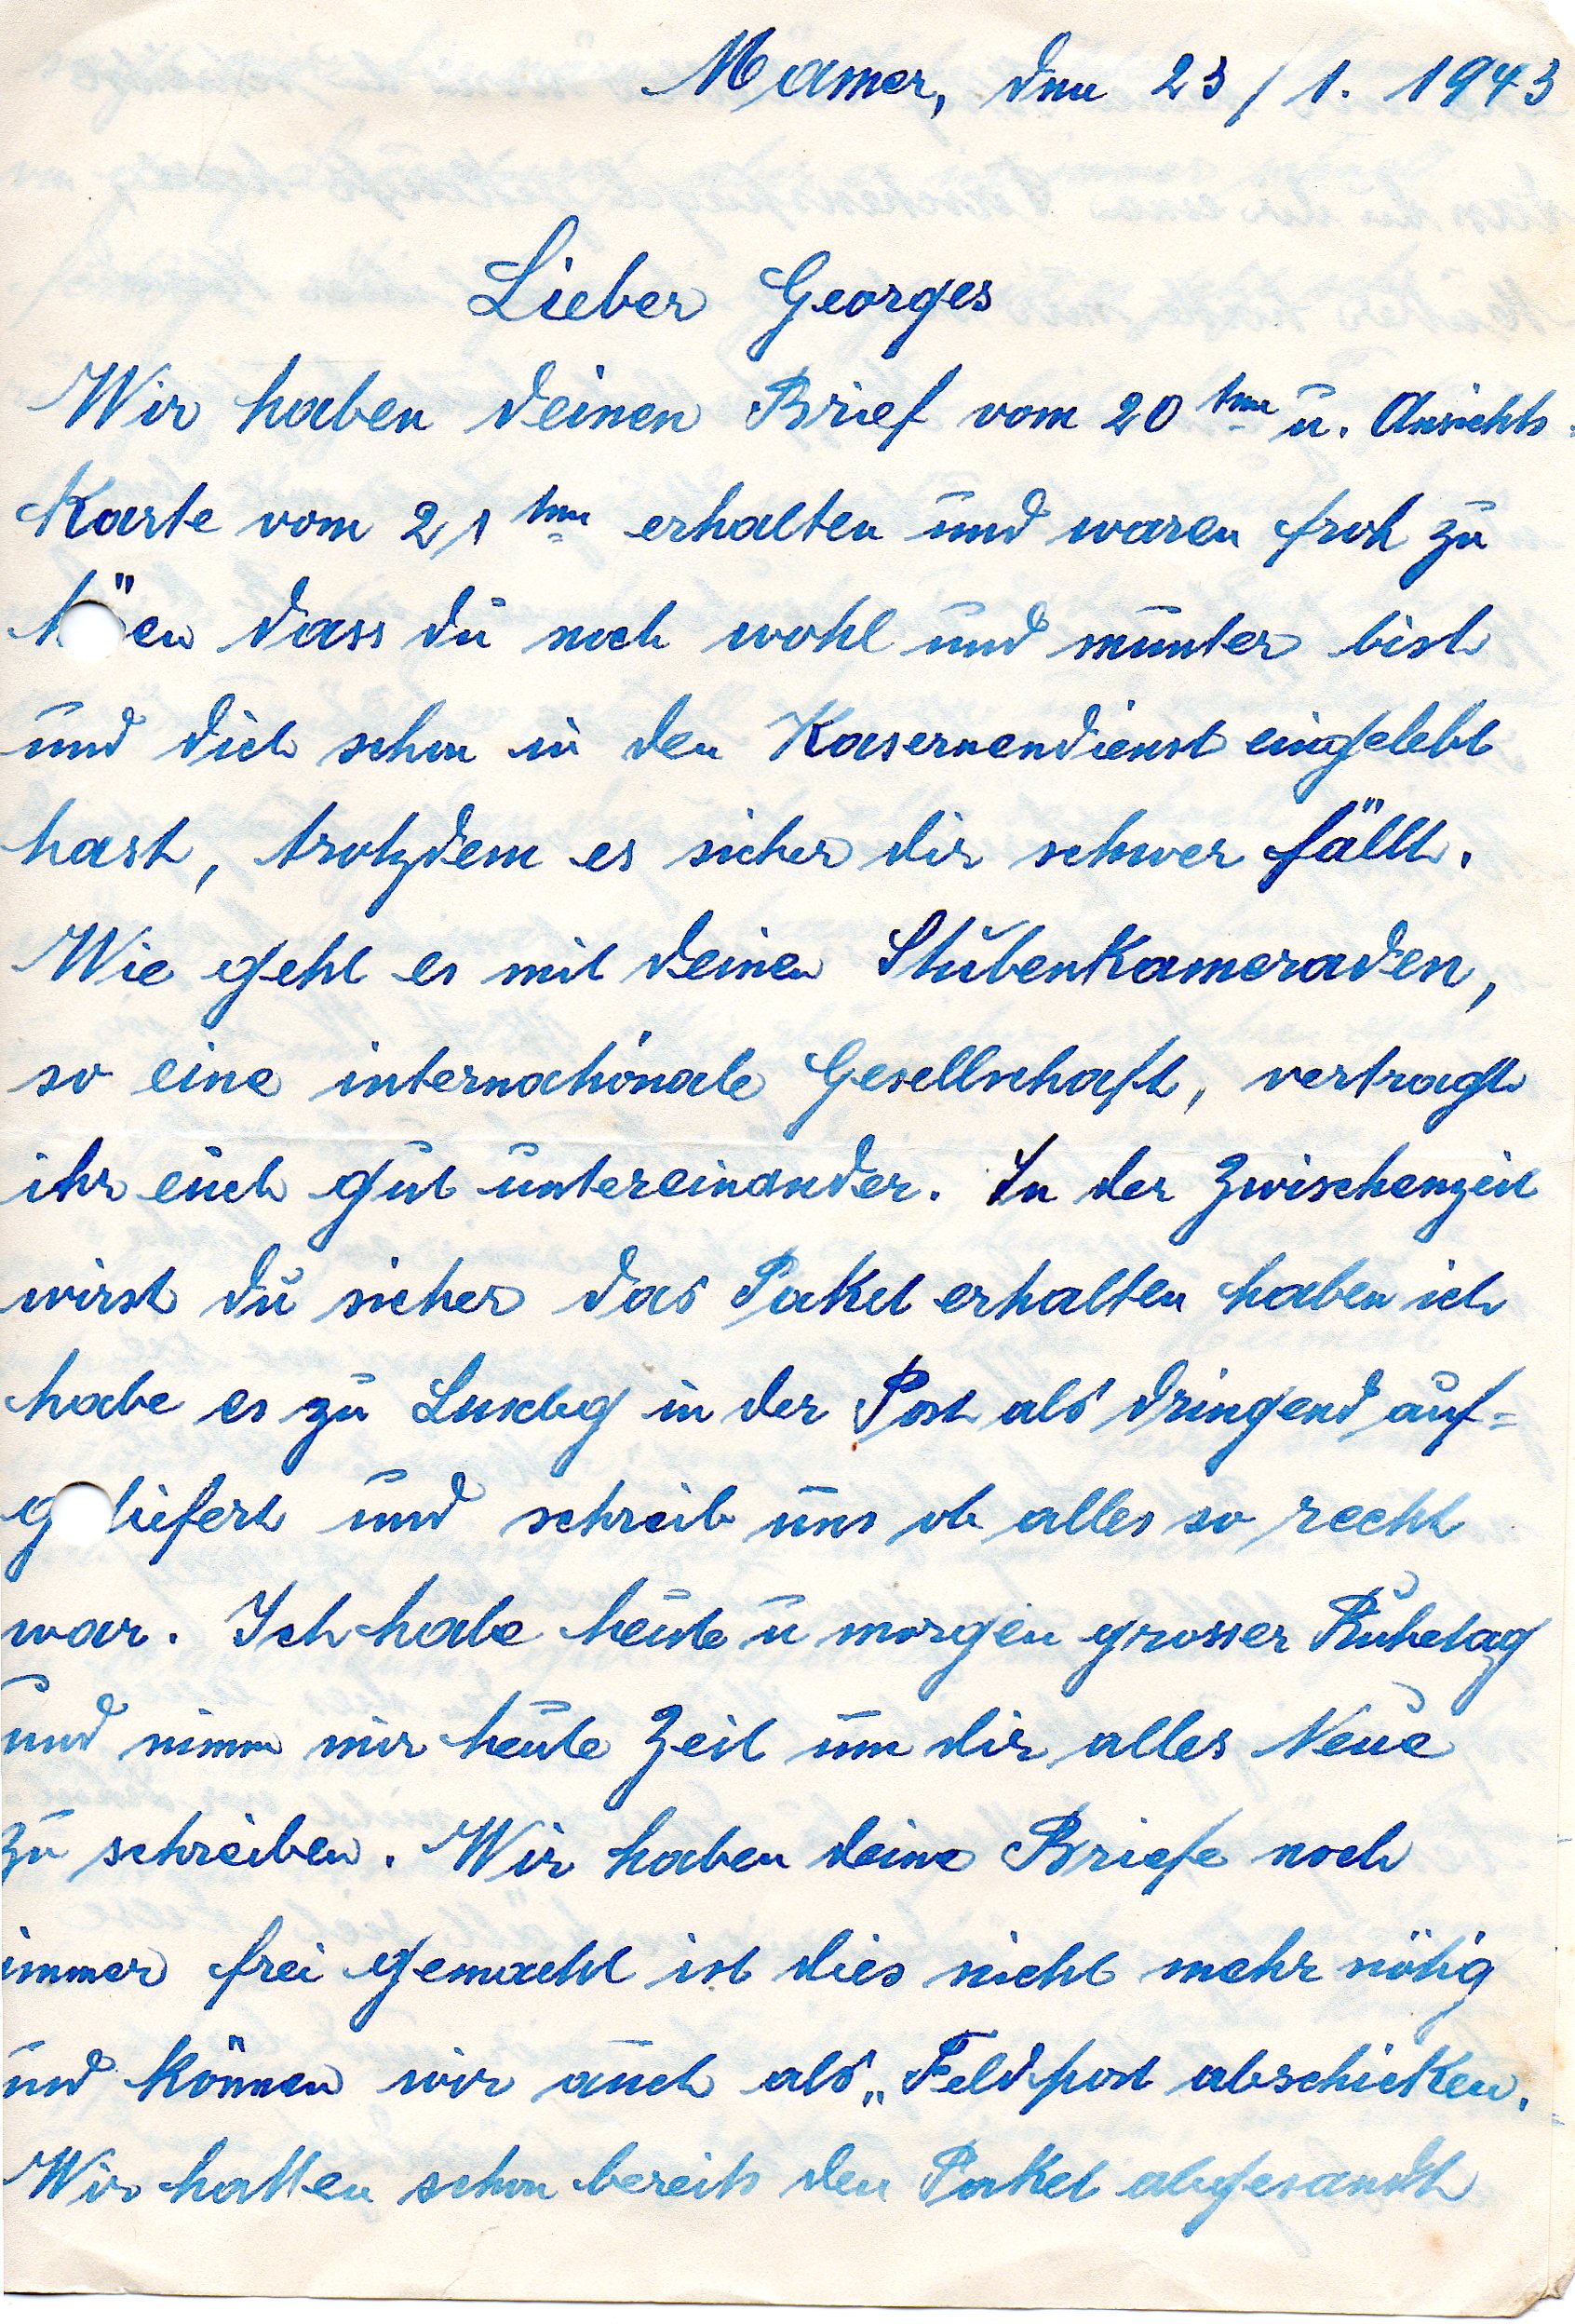 Mamer, den 23/1. 1943
Lieber Georges
Wir haben deinen Brief vom 20ten u. Ansichts-
Karte vom 21ten erhalten und waren froh zu
hö en dass du noch wohl und munter bist
und dich schon in den Kasernendienst eingelebt
hast, trotzdem es sicher dir schwer fällt.
Wie geht es mit deinen Stubenkameraden,
so eine internationale Gesellschaft, vertragt
ihr euch gut untereinander. In der Zwischenzeit
wirst du sicher das Paket erhalten haben ich
habe es zu in der Post als dringend auf=
g liefert und schreib uns ob alles so recht
war. Ich habe heute u morgen grosser Ruhetag
und nimm mir heute Zeit um dir alles Neue
zu schreiben. Wir haben deine Briefe noch
immer frei gemacht ist dies nicht mehr nötig
und können wir auch als „Feldpost abschicken.
Wir hatten schon bereits den Paket abgesandt